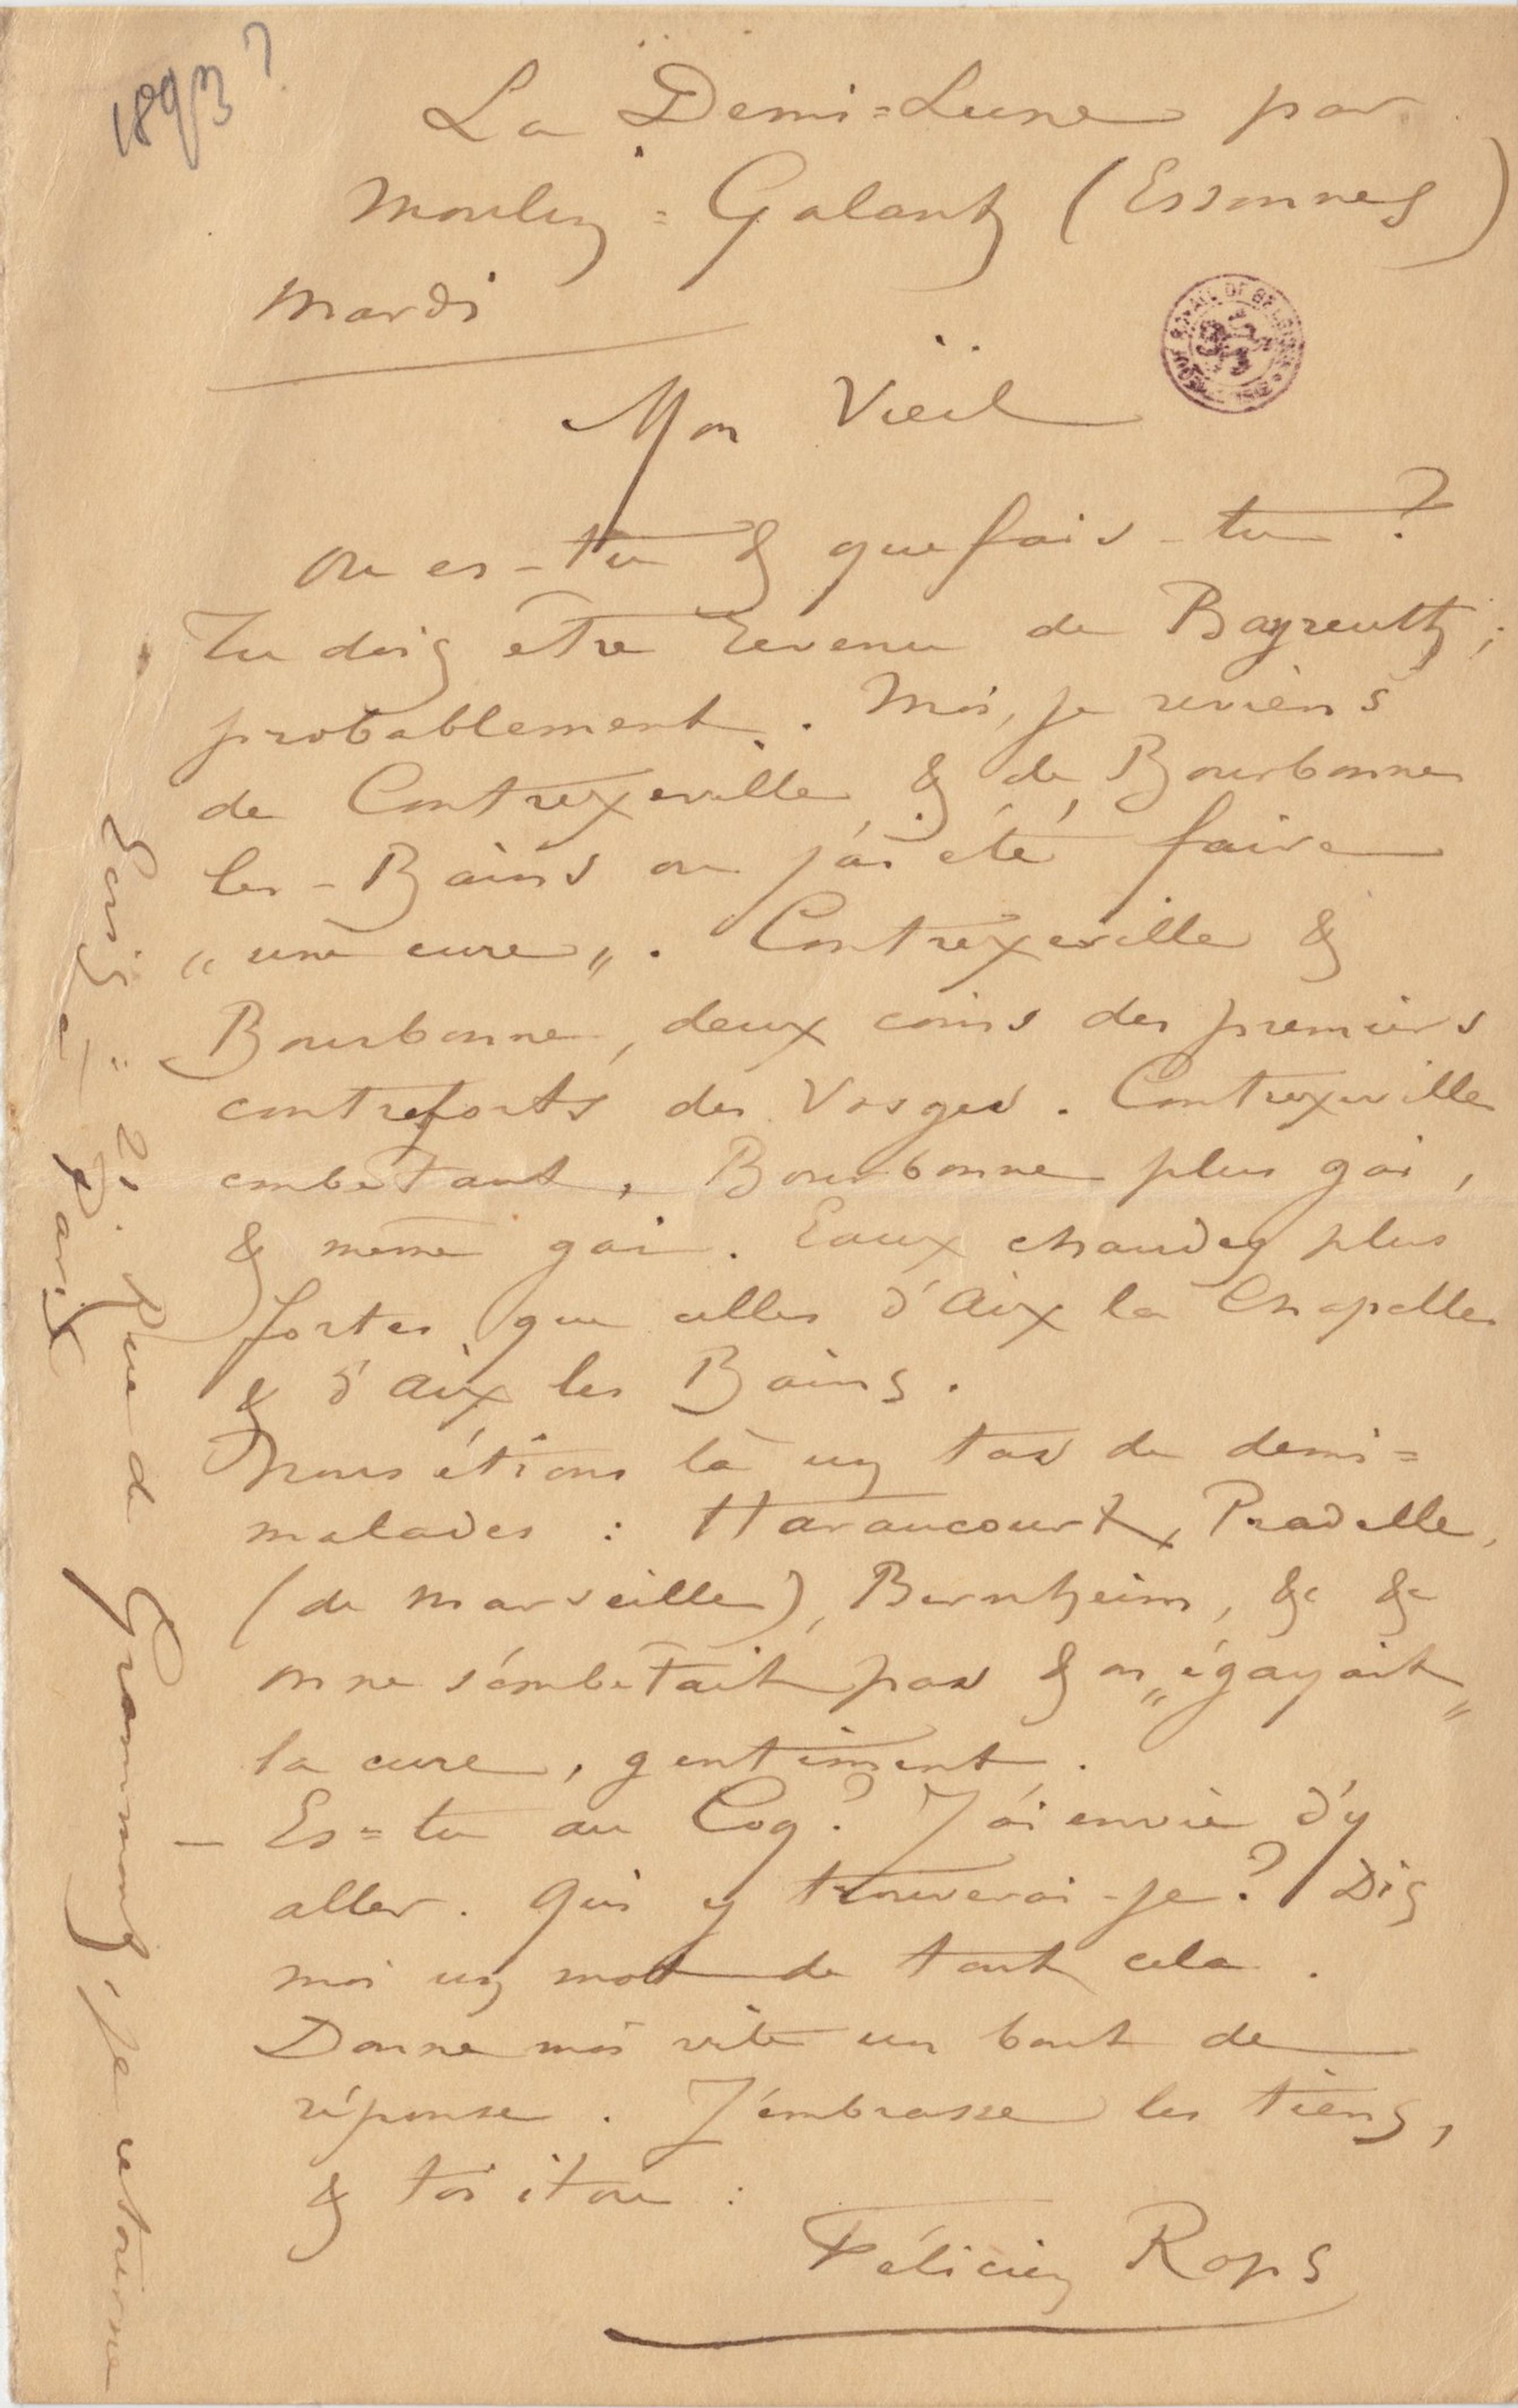 1893?
La Demi=Lune par
Moulin=Galant (Essonnes)
Mardi
Mon Vieil
Ou es-tu & que fais-tu ?
Tu dois être revenu de Bayreuth,
probablement. Moi, je reviens
de Contrexeville & de Bourbonne
les-Bains ou j'ai été faire
„une cure„. Contrexeville &
Bourbonne, deux coins des premiers
contreforts des Vosges. Contrexeville
embetant, Bourbonne plus gai,
& meme gai. Eaux chaudes plus
fortes que celles d'Aix la Chapelle
& d'Aix les Bains.
Nous étions là un tas de demi=
malades : Haraucourt, Pradelle,
(de Marseille), Bernheim, &c &c
on ne s'embetait pas & on „égayait„
la cure, gentiment.
— Es=tu au Coq? J'ai envie d'y
aller. Qui y trouverai-je? Dis
moi un mot de tout cela.
Donne moi vite un bout de
réponse. J'embrasse les tiens,
& toi itou :
Félicien Rops
Ecris = 21. Rue de Grammont, je retourne
à Paris